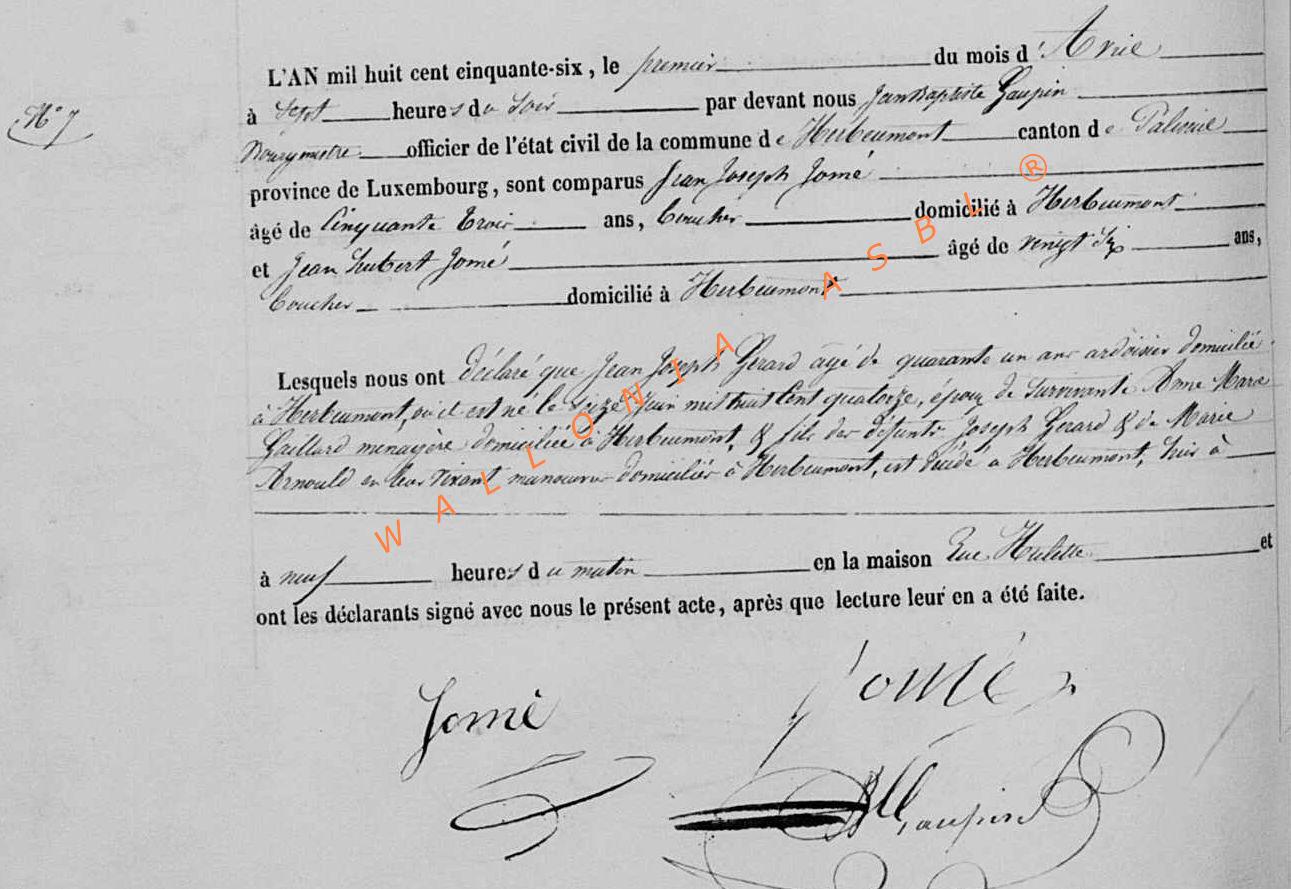 L'AN mil huit cent cinquante-six, le premier du mois d'Avril
N° 7
à Sept heures du Soir par devant nous Jean Baptiste Gaupin
Bourgmestre officier de l'état civil de la commune de Herbeumont canton de Paliseul
province de Luxembourg, sont comparus Jean Joseph Jomé
âgé de Cinquante trois ans, domicilié à Herbeumont
et Jean Hubert Jomé âgé de vingt Six ans,
domicilié à Herbeumont
Lesquels nous ont déclaré que Jean Joseph Gerard agé de quarante un ans ardoisier domicilié
à Herbeumont, où il est né le Seize Juin mil huit Cent quatorze, époux de Survivante Anne Marie
Gaillard menagère domiciliée à Herbeumont, & fils des défunts Joseph Gerard & de Marie
Arnould en leur vivant manoeuvres domiciliés à Herbeumont, est décédé à Herbeumont, hier à
à neuf heures du matin en la maison Rue Hulette et
ont les déclarants signé avec nous le présent acte, après que lecture leur en a été faite.
Jomé
Jomé
Gaupin
WALLONIA ASBL ®